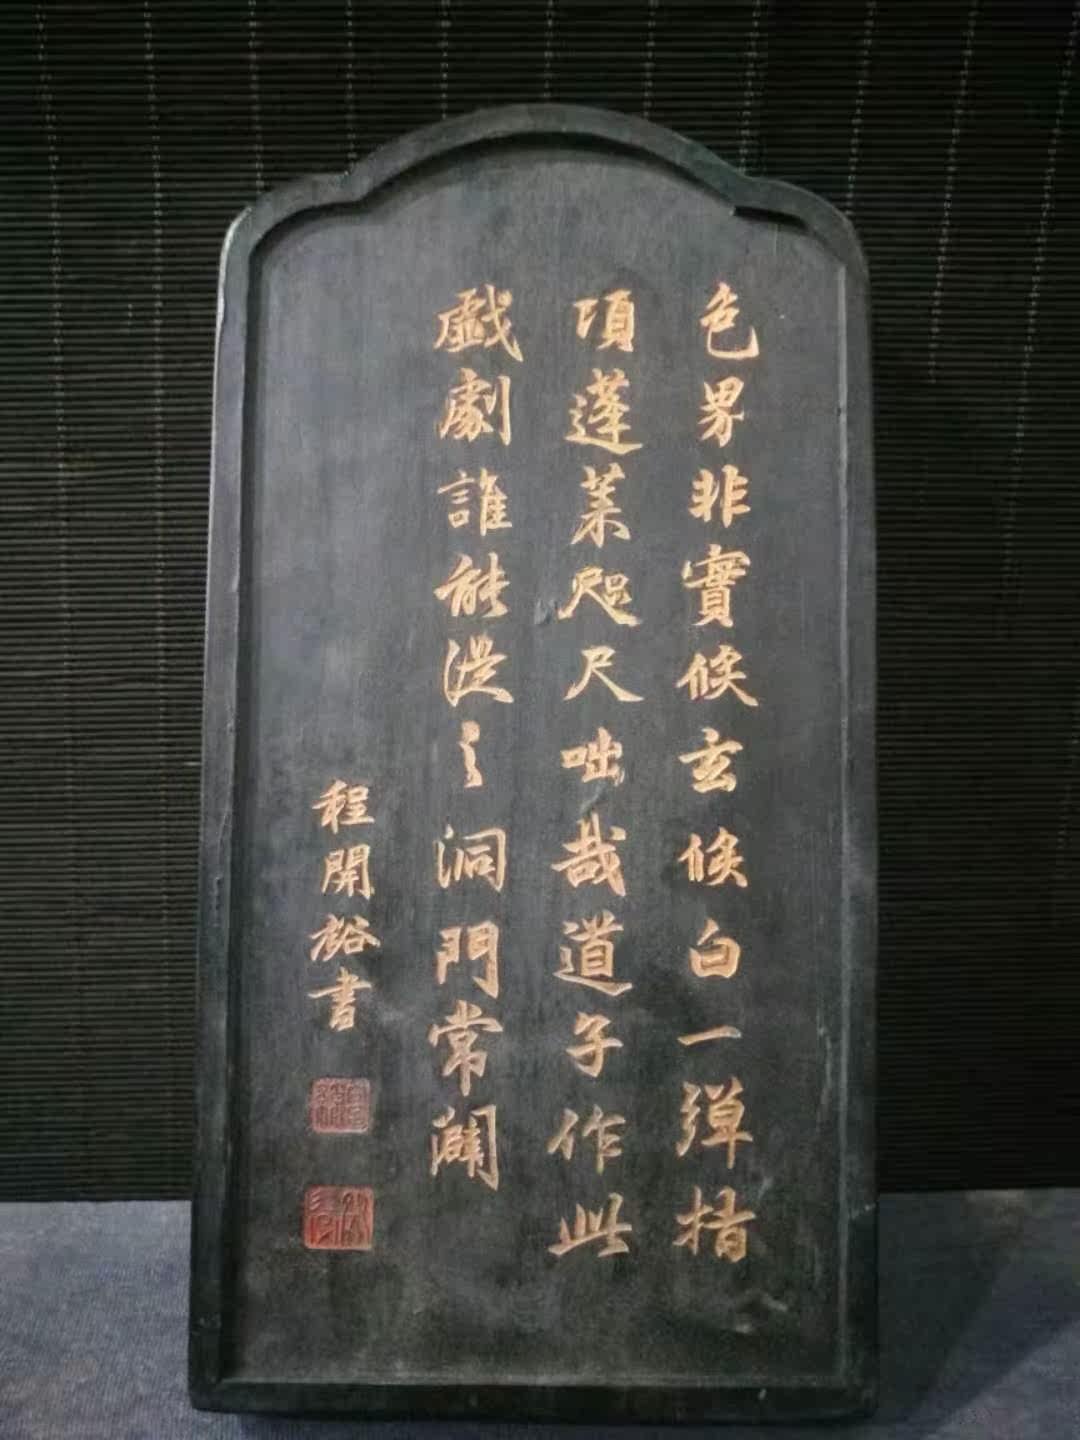 色界非實倏玄倏白一彈指
項蓬萊咫尺咄哉道子作此
戲劇誰能從之洞門常闢
程開裕書